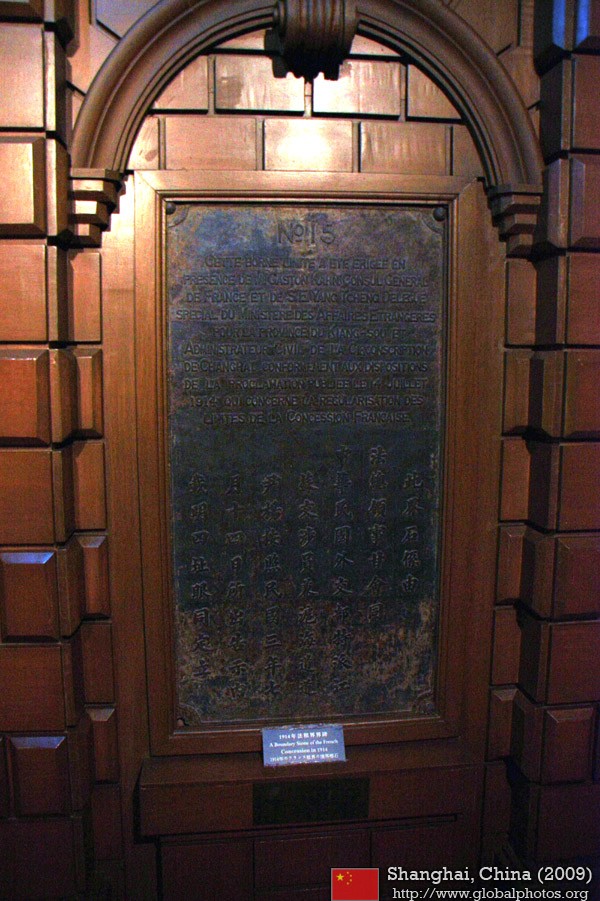 No 15
CETTE BORNE LIMITE A ETE ERIGEE EN
PRESENCE DE M. GASTON KAHN CONSUL GENERAL
DE FRANCE ET DE S.E. YANG TCHENG DELEGUE
SPECIAL DU MINISTERE DES AFFAIRES ETRANGERES
POUR LA PROVINCE DU KIANG-SOU ET
ADMINISTRATEUR CIVIL DE LA CIRCONSCRIPTION
DE CHANGHAI, CONFORMEMENT AUX DISPOSITIONS
DE LA PROCLAMATION PUBLIEE LE 14 JUILLET
1914 QUI CONCERNE LA REGULARISATION DES
LIMITES DE LA CONCESSION FRANÇAISE.
此界石係由
法總領事甘介同
中華民國外交部特派江
蘇交涉員兼滬海道道
尹楊按照民國三年七
月十四日所出告示內
載明四址眼同定立
1914年法租界界碑
A Boundary Stone of the French
Concession in 1914
1914年のフランス租界の境界標石
Shanghai, China (2009)
http://www.globalphotos.org